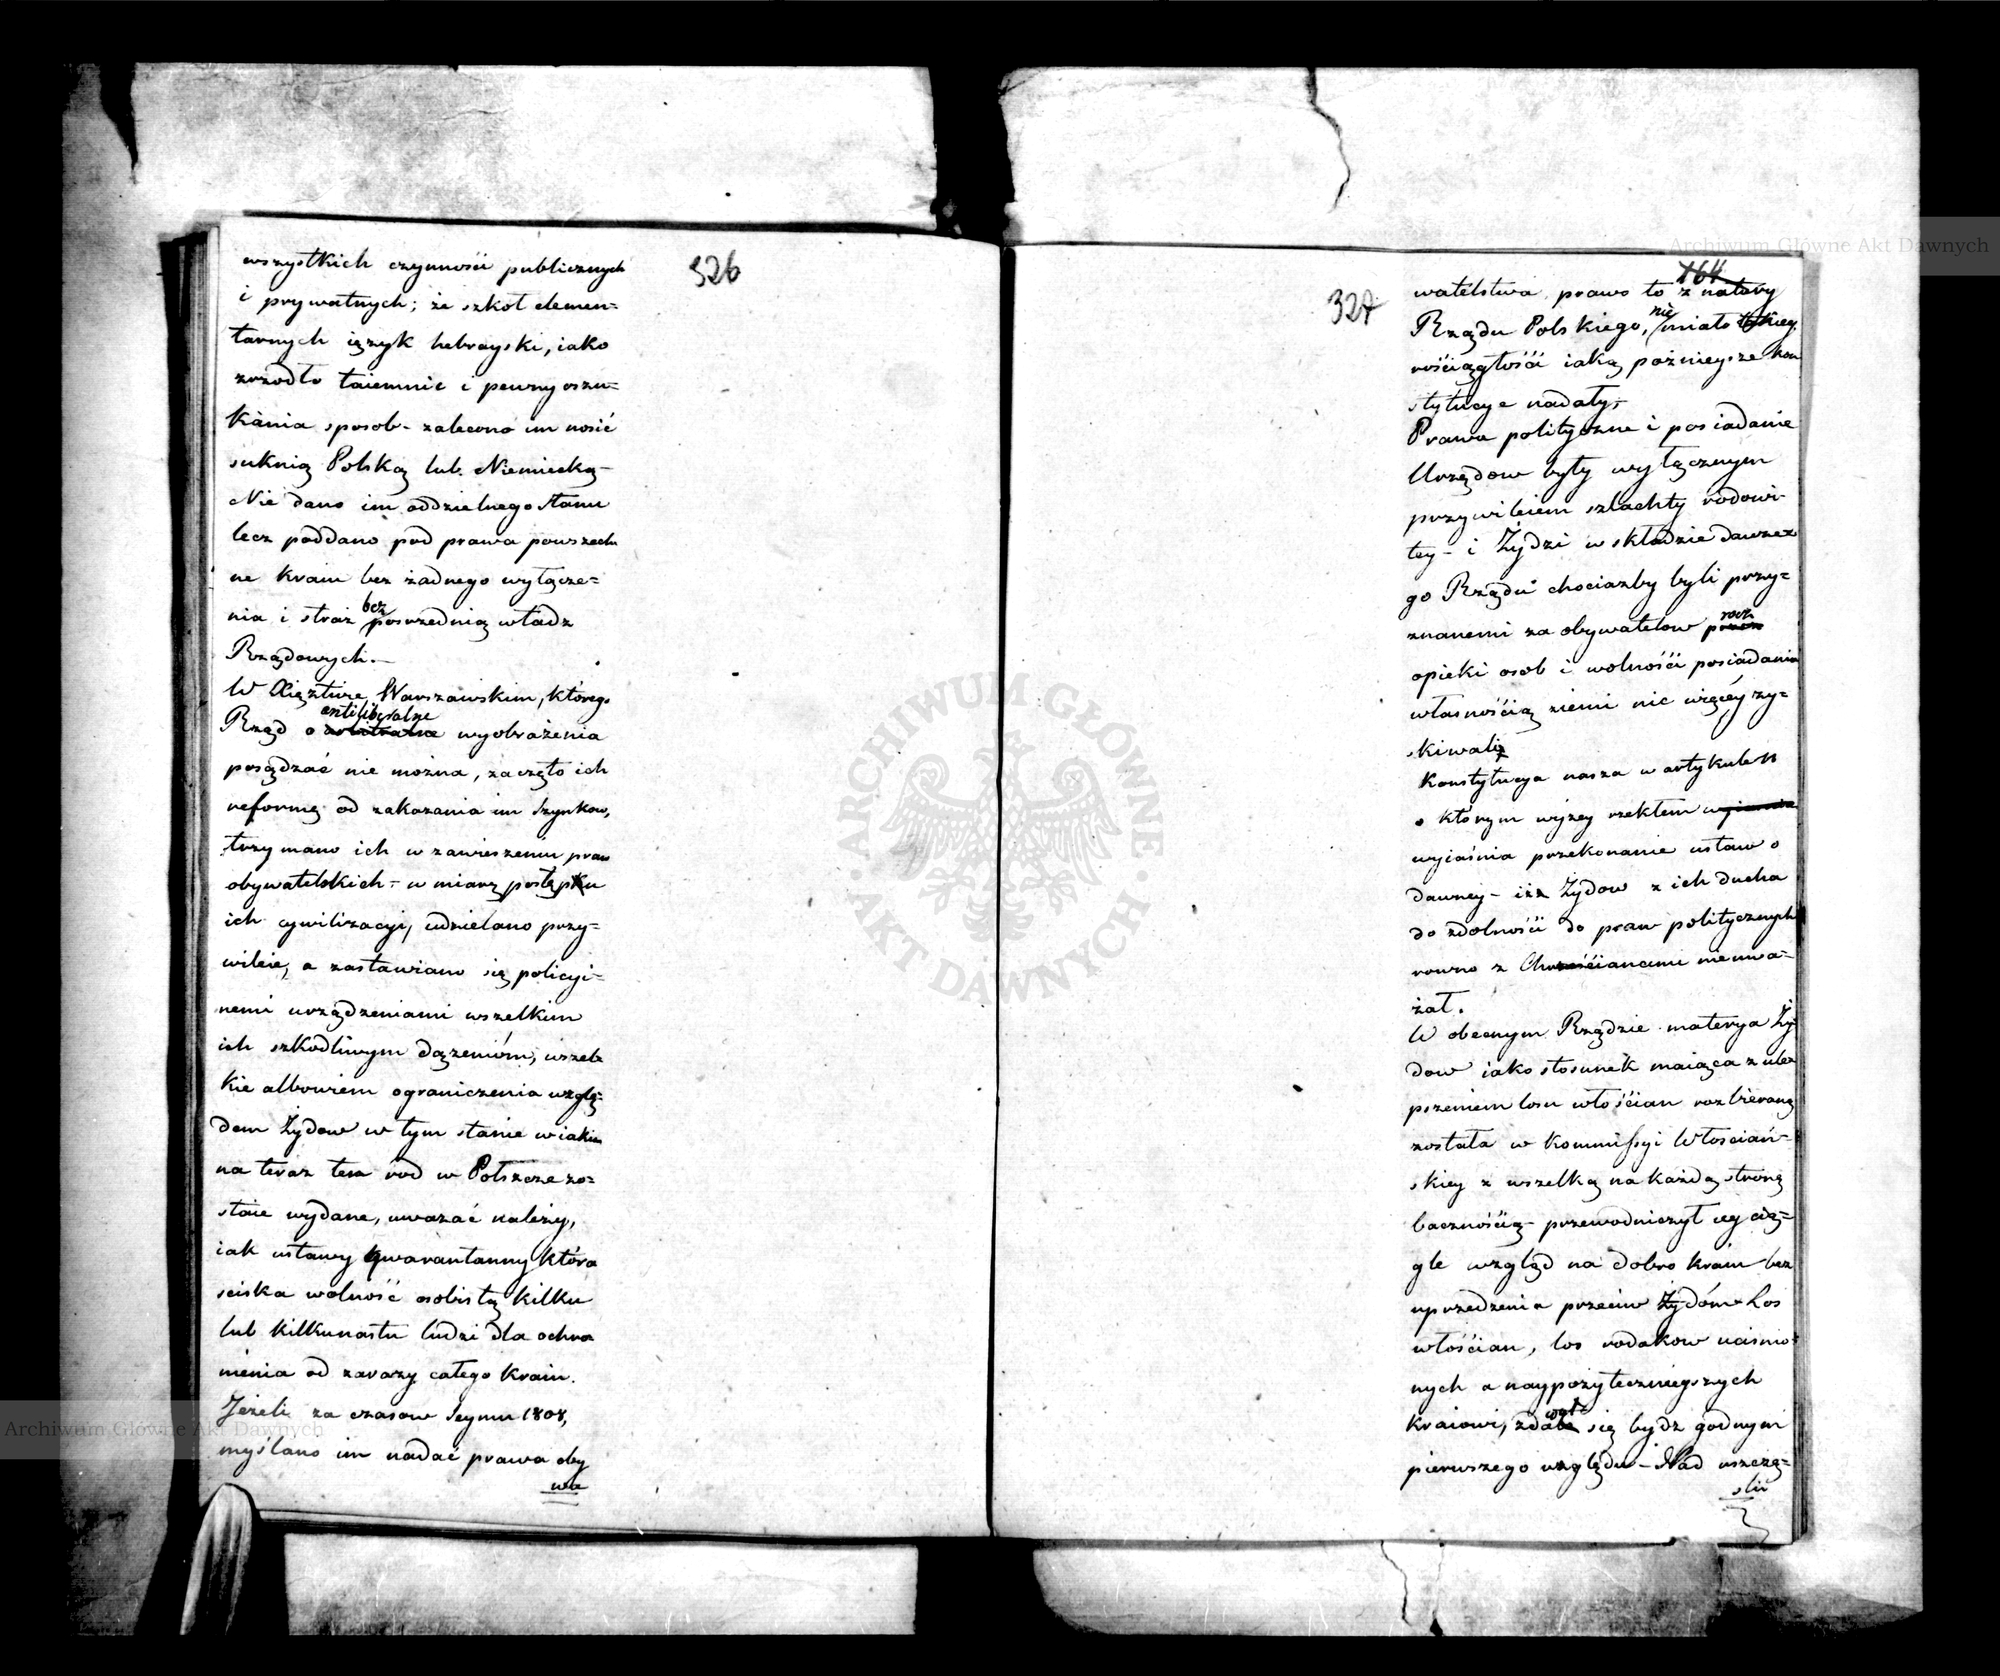 326
wszystkich czynności publicznych
i prywatnych; że szkoł elemen=
tarnych ięzyk hebrayski, iako
zrzodło taiemnic i pewny oszu=
kania sposob – zalecono im nosić
suknią Polską lub Niemiecką –
Nie dano im oddzielnego stanu
lecz poddano pod prawa powszech
ne kraiu bez żadnego wyłącze=
nia i straż bezposrzednią władz
Rządowych. –
W Xięztwie Warszawskim, którego
Rząd o antiliberalne wyobrażenia
posądzać nie można, zaczęto ich
reformę od zakazania im Szynkow,
trzymano ich w zawieszeniu praw
obywatelskich – w miarę postępku
ich cywilizacyi, udzielano przy=
wileie, a zastawiano się policyi=
nemi urządzeniami wszelkim
ich szkodliwym dążeniom, wszel=
kie albowiem ograniczenia wzglę=
dem Żydow w tym stanie w iakim
na teraz ten rod w Polszcze zo=
staie wydane, uważać należy,
iak ustawy kwarantanny która
sciska wolność osobistą kilku
lub kilkunastu ludzi dla ochro
nienia od zarazy całego kraiu.
Jeżeli za czasow Seymu 1808,
myślano im nadać prawa oby
wa
164
327
watelstwa prawo to z natury
Rządu Polskiego, nie miało takiey
rościągłości iaką pożnieysze kon
stytucye nadały;
Prawa polityczne i posiadanie
Urzędow były wyłącznym
przywileiem szlachty rodowi=
tey – i Żydzi w składzie dawne=
go Rządu chociażby byli przy=
znanemi za obywatelow
opieki osob i wolności posiadania
własnością ziemi nic więcéy zy=
skiwali
Konstytucya nasza w artykule
o którym wyżey rzekłem
wyiaśnia przekonanie ustaw o
dawney – iż Żydow z ich ducha
do zdolności do praw politycznych
rowno z Chrześcianami nieuwa=
żał.
W obecnym Rządzie materya Ży
dow iako stosunek maiąca z ule=
pszeniem losu włościan rozbieraną
została w Kommissyi Włościań=
skiey z wszelką na każdą stronę
bacznością – przewodniczył iey cią=
gle wzgląd na dobro kraiu bez
uprzedzenia przeciw Żydóm Los
włościan, los rodakow uciśnio=
nych a naypożytecznieyszych
kraiowi, zdawał się bydz godnym
pierwszego względu – Nad uszczę=
śli
Archiwum Główne Akt Dawnych
Archiwum Główne Akt Dawnych
ARCHIWUM GŁÓWNE
· AKT DAWNYCH ·